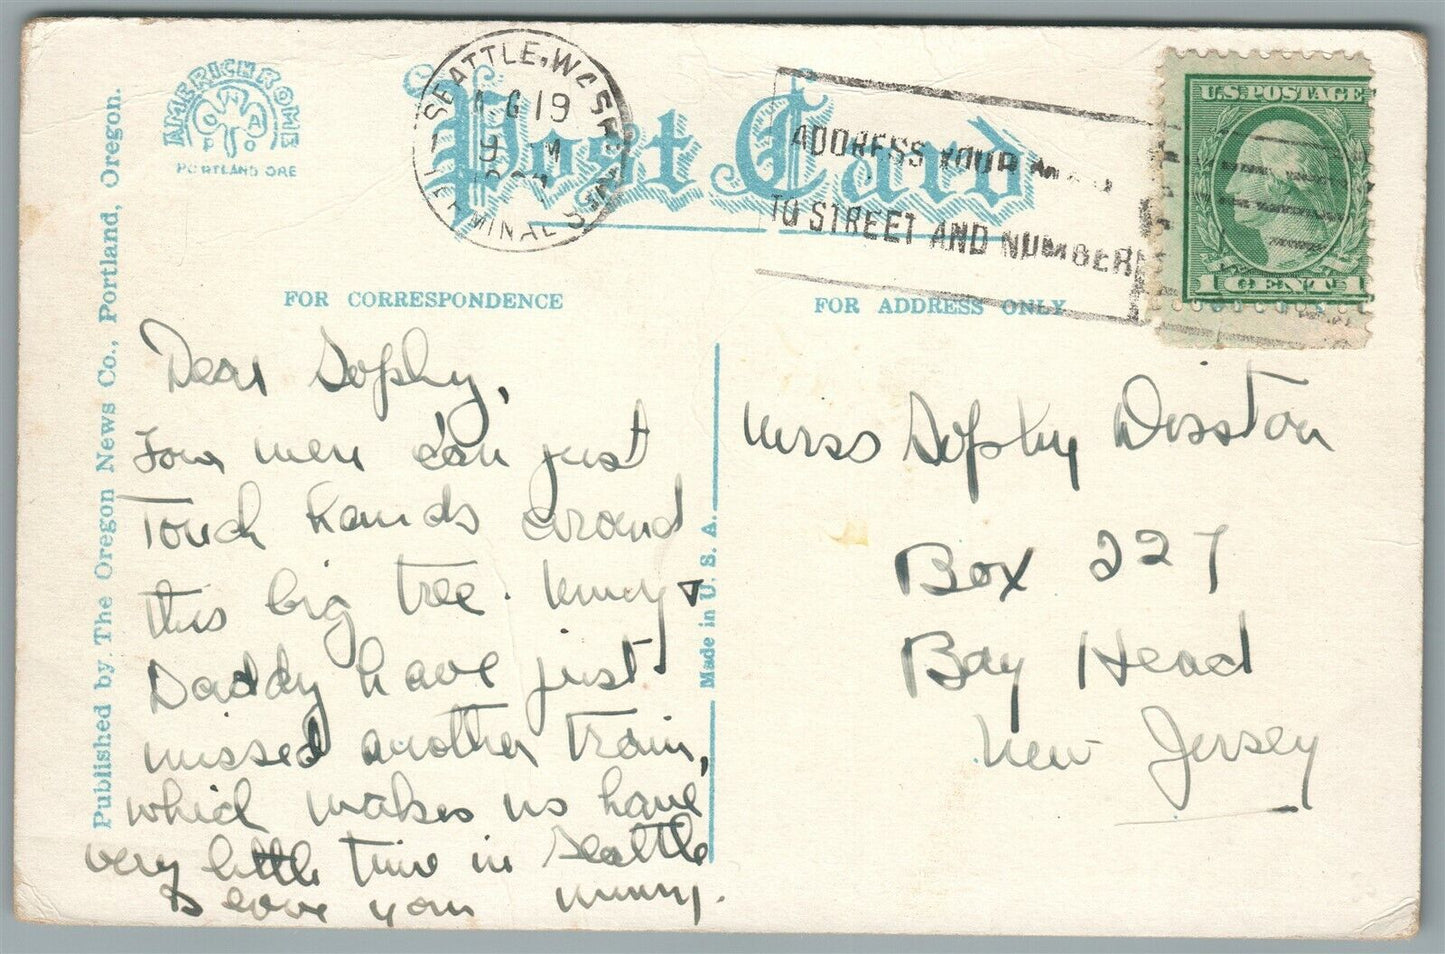 AMERICHROME
PORTLAND ORE
SEATTLE, WASH
TERMINAL STA
19
9 M
Post Card
ADDRESS YOUR MAIL
TO STREET AND NUMBER
U.S. POSTAGE
1 CENT 1
FOR CORRESPONDENCE
FOR ADDRESS ONLY
Published by The Oregon News Co., Portland, Oregon.
Made in U. S. A.
Dear Sophy,
Four men can just
touch hands around
this big tree. Muny &
Daddy have just
missed another train,
which makes us have
very little time in Seattle
I love you Muny.
Miss Sophy Disston
Box 227
Bay Head
New Jersey